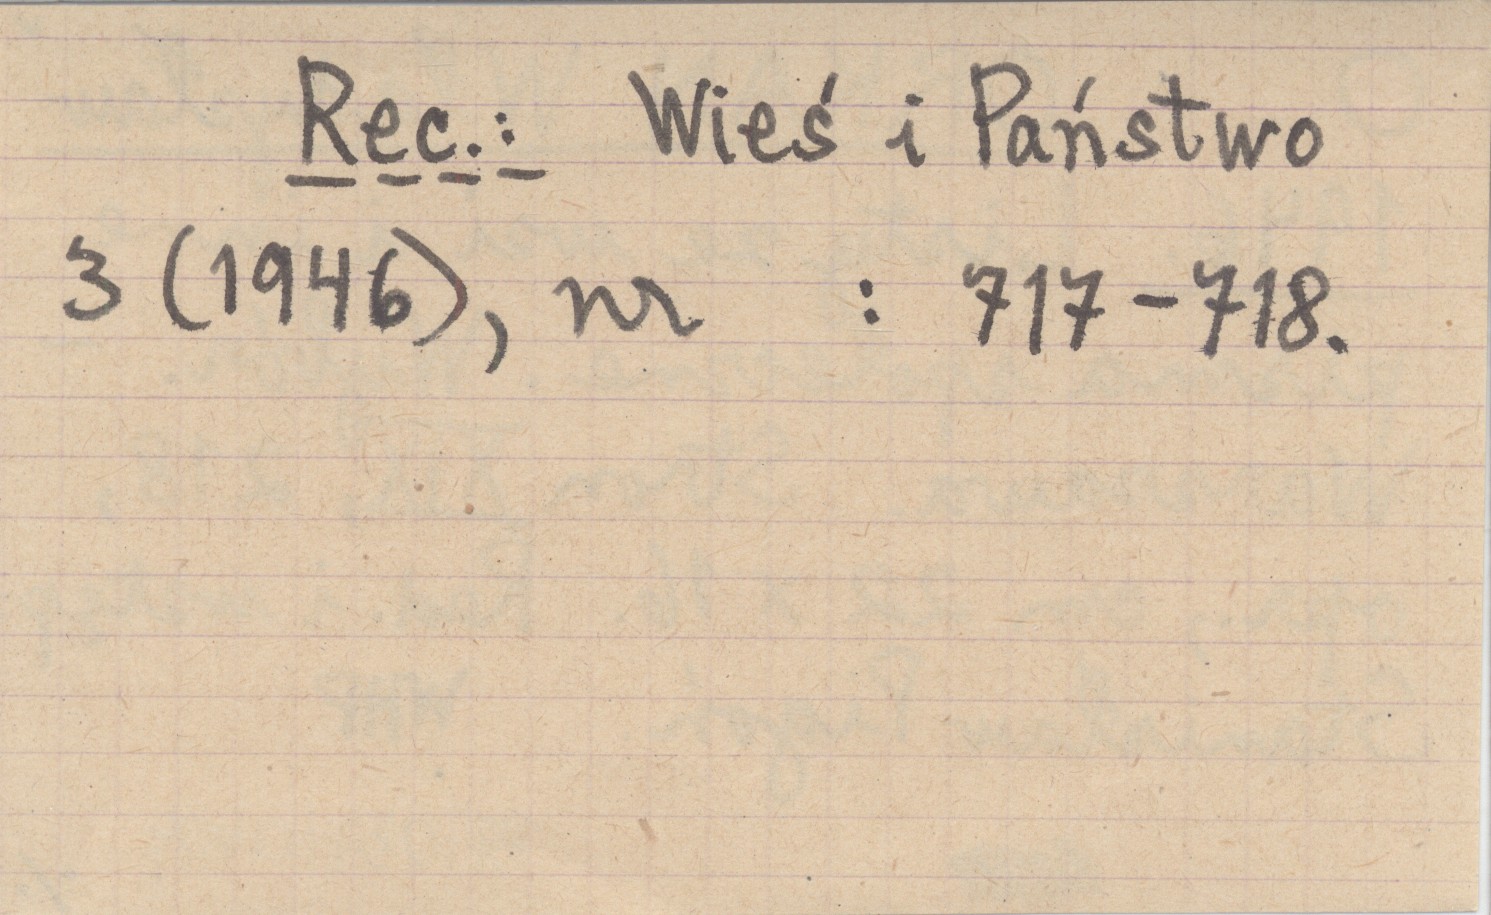 Rec.: Wieś i Państwo
3 (1946), nr : 717-718.